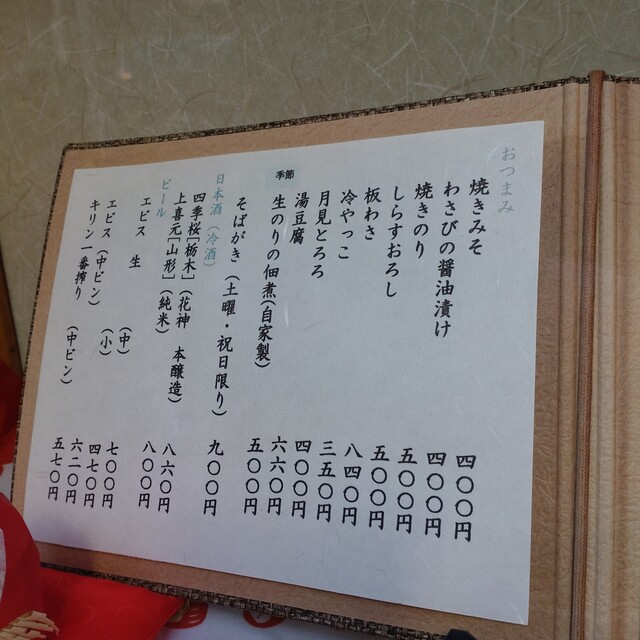 おつまみ
焼きみそ 四〇〇円
わさびの醤油漬け 四〇〇円
焼きのり 五〇〇円
しらすおろし 五〇〇円
板わさ 八四〇円
冷やっこ 三五〇円
月見とろろ 四〇〇円
湯豆腐 六六〇円
季節 生のりの佃煮(自家製) 五〇〇円
そばがき(土曜・祝日限り) 九〇〇円
日本酒(冷酒)
四季桜[栃木](花神 本醸造) 八六〇円
上喜元[山形](純米) 八〇〇円
ビール
エビス 生 (中) 七〇〇円
(小) 四七〇円
エビス(中ビン) 六二〇円
キリン一番搾り (中ビン) 五七〇円